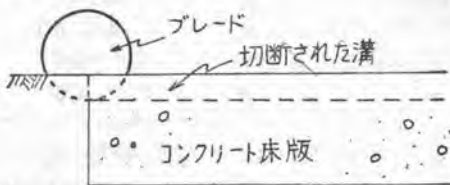 ブレード
切断された溝
コンクリート床版